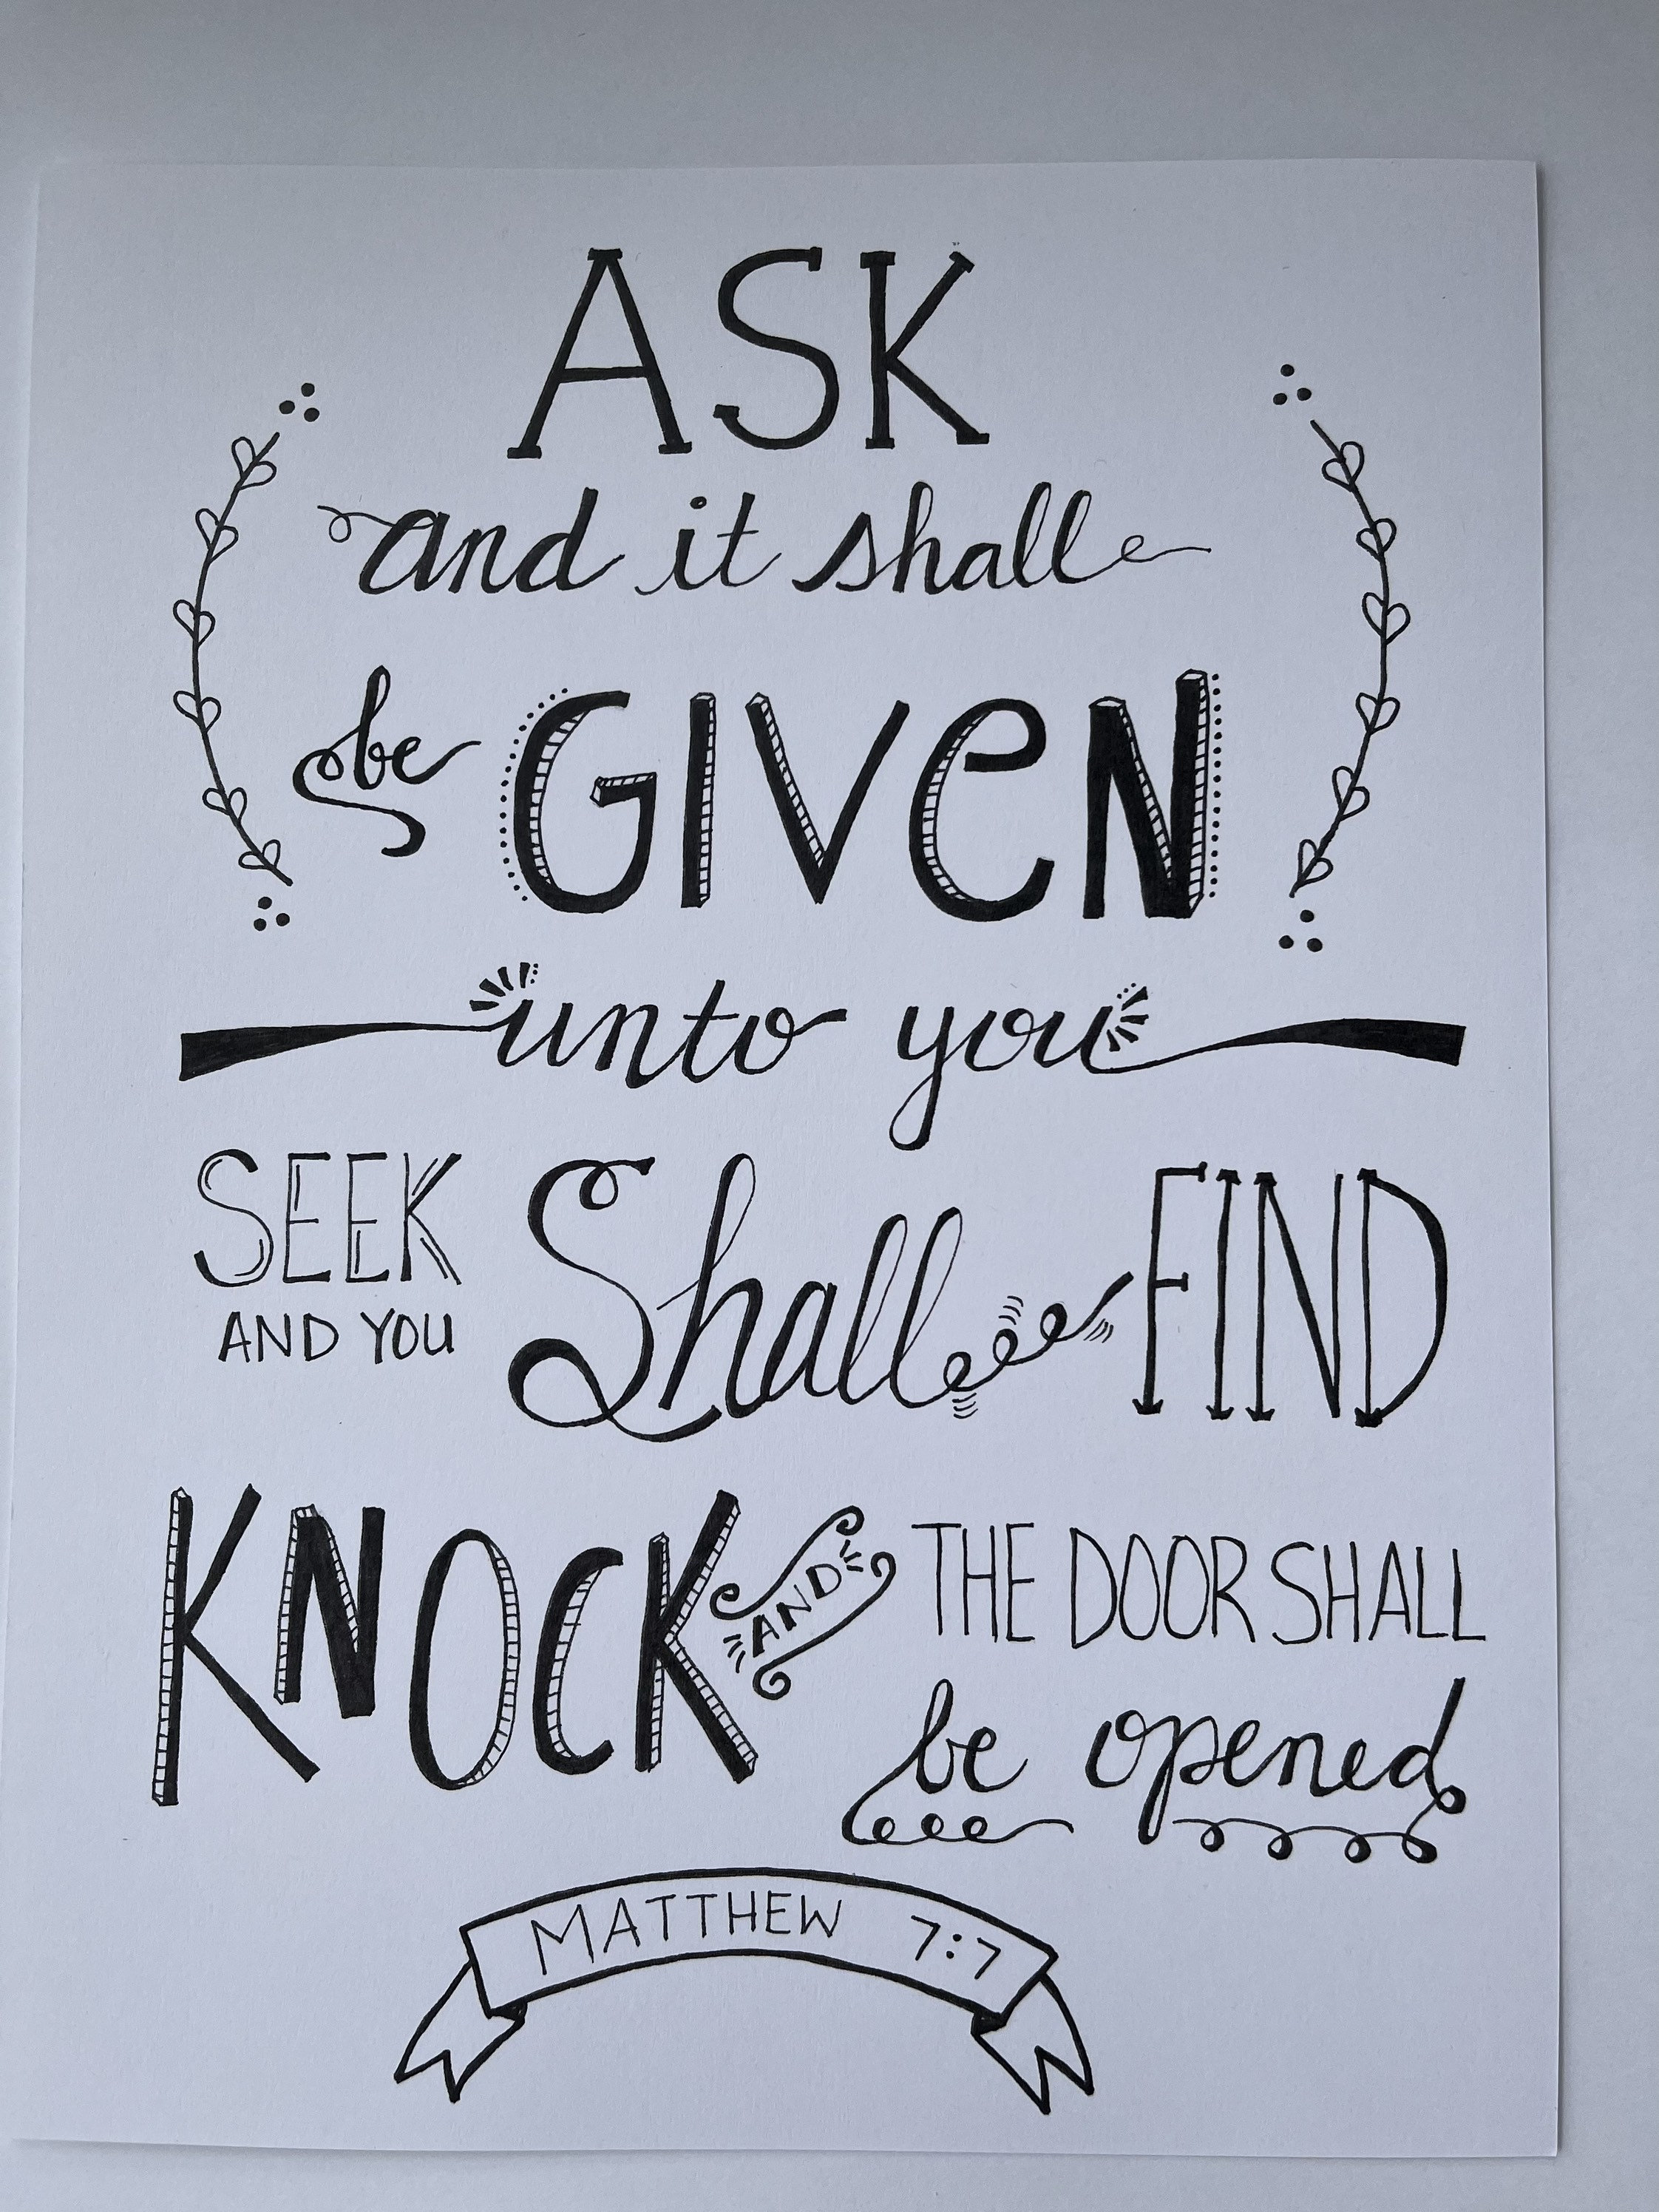 ASK
and it shall
be GIVeN
unto you
SEEK
AND YOU
Shall FIND
KNOCK AND THE DOOR SHALL
be opened
MATTHEW 7:7